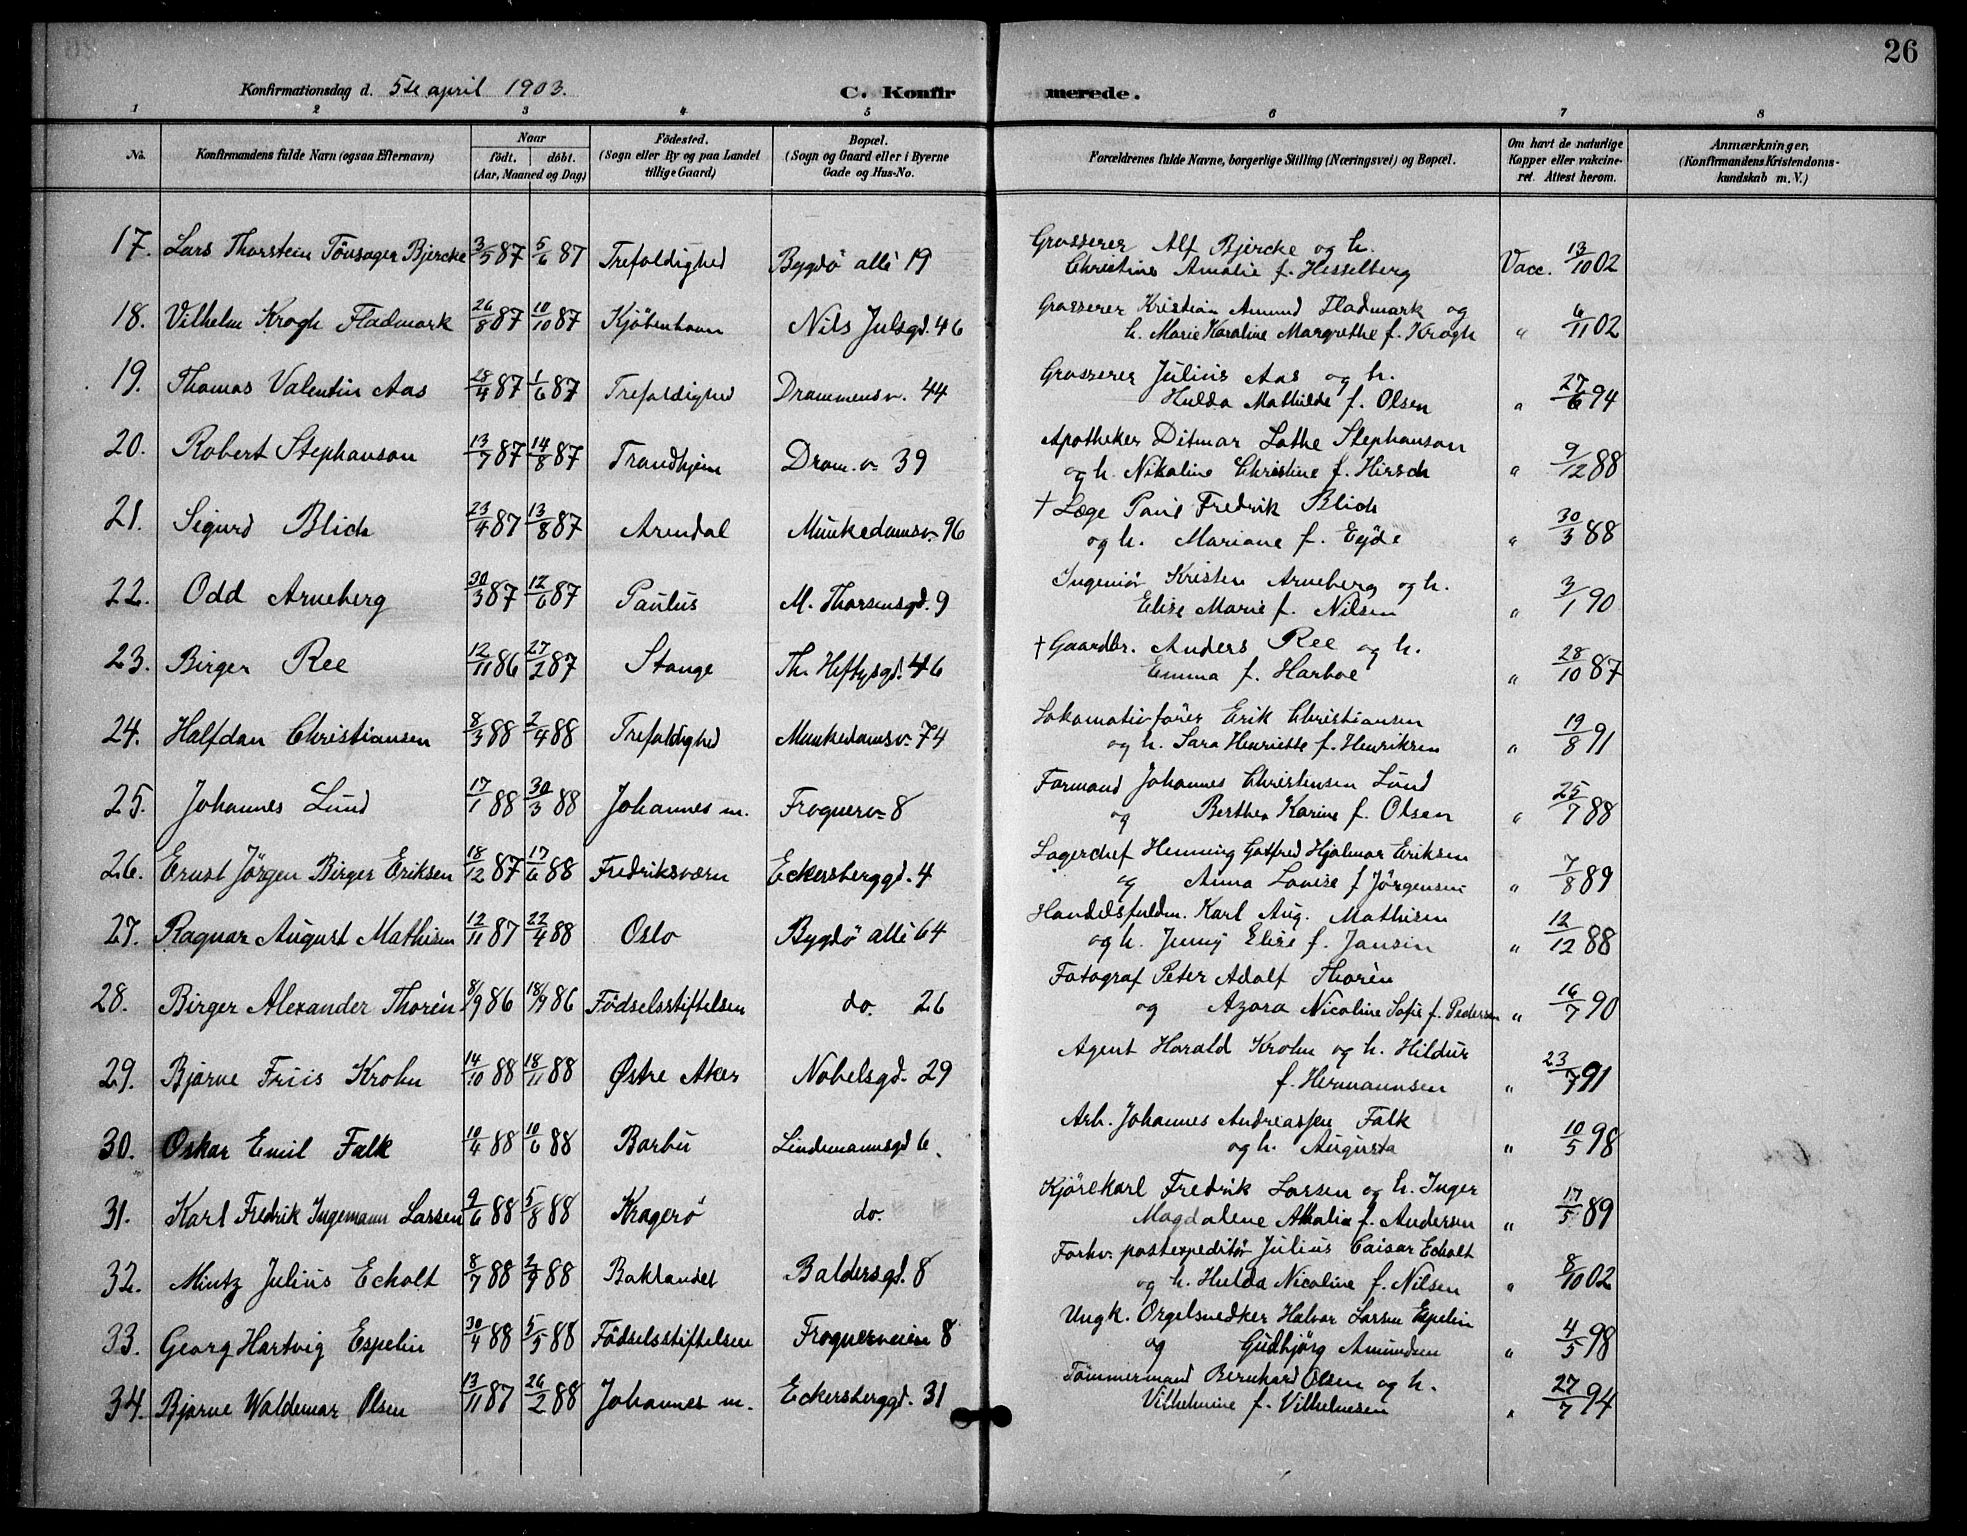 26
Konfirmationsdag d. 5te april 1903.
C. Konfirmerede.
1 2 3 4 5 6 7 8
No. Konfirmandens fulde Navn (ogsaa Efternavn) Naar födt. döbt. (Aar, Maaned og Dag) Födested. (Sogn eller By og paa Landet tillige Gaard) Bopæl. (Sogn og Gaard eller i Byerne Gade og Hus-No. Forældrenes fulde Navne, borgerlige Stilling (Næringsvei) og Bopæl. Om havt de naturlige Kopper eller vakcineret. Attest herom. Anmærkninger, (Konfirmandens Kristendomskundskab m. V.)
17. Lars Thorstein Tönsager Bjercke 3/5 87 5/6 87 Trefoldighed Bygdö allé 19 Grosserer Alf Bjercke og h.
Christine Amalie f. Hesselberg Vacc. 13/10 02
18. Vilhelm Krogh Fladmark 26/8 87 10/10 87 Kjöbenhavn Nils Julsgd. 46 Grosserer Kristian Amund Fladmark og
h. Marie Karoline Margrethe f. Krogh " 6/11 02
19. Thomas Valentin Aas 28/4 87 1/6 87 Trefoldighed Drammensv. 44 Grosserer Julius Aas og h.
Hulda Mathilde f. Olsen " 27/6 94
20. Robert Stephanson 13/7 87 14/8 87 Trondhjem Dram.v. 39 Apotheker Ditmar Lothe Stephanson
og h. Nikoline Christine f. Hirsch " 9/12 88
21. Sigurd Blich 23/4 87 13/8 87 Arendal Munkedamsv. 96 † Læge Paul Fredrik Blich
og h. Mariane f. Eyde " 30/3 88
22. Odd Arneberg 30/3 87 12/6 87 Paulus M. Thorsensgd. 9 Ingeniör Kristen Arneberg og h.
Elise Marie f. Nilsen " 3/1 90
23. Birger Ree 12/11 86 27/2 87 Stange Th. Heftysgd. 46 † Gaardbr. Anders Ree og h.
Emma f. Harboe " 28/10 87
24. Halfdan Christiansen 8/3 88 2/4 88 Trefoldighed Munkedamsv. 74 Lokomotivförer Erik Christiansen
og h. Sara Henriette f. Henriksen " 19/8 91
25. Johannes Lund 17/1 88 30/3 88 Johannes m. Frognerv. 8 Formand Johannes Christensen Lund
og Berthea Karine f. Olsen " 25/7 88
26. Ernst Jörgen Birger Eriksen 18/12 87 17/6 88 Fredriksværn Eckersberggd. 4 Lagerchef Henning Gotfred Hjalmar Eriksen
og Anna Lovise f. Jörgensen " 7/8 89
27. Ragnar August Mathisen 12/11 87 22/4 88 Oslo Bygdö allé 64 Handelsfuldm. Karl Aug. Mathisen
og h. Jenny Elise f. Jansen " 12/12 88
28. Birger Alexander Thorén 8/9 86 18/9 86 Födselsstiftelsen do. 26 Fotograf Peter Adolf Thorèn
og Azora Nicoline Sofie f. Pedersen " 16/7 90
29. Bjarne Friis Krohn 14/10 88 18/11 88 Østre Aker Nobelsgd. 29 Agent Harald Krohn og h. Hildur
f. Hermannsen " 23/7 91
30. Oskar Emil Falk 10/4 88 10/6 88 Barbu Lindemannsgd 6. Arb. Johannes Andreassen Falk
og h. Augusta " 10/5 98
31. Karl Fredrik Ingemann Larsen 9/6 88 5/8 88 Kragerö do. Kjörekarl Fredrik Larsen og h. Inger
Magdalene Amalia f. Andersen " 17/5 89
32. Mintz Julius Echolt 8/7 88 2/9 88 Baklandet Baldersgd. 8 Forhv. postexpeditör Julius Caisar Echolt
og h. Hulda Nicoline f. Nilsen " 8/10 02
33. Georg Hartvig Espelin 30/4 88 5/5 88 Födselsstiftelsen Frognerveien 8 Ungk. Orgelsnedker Halvor Larsen Espelin
og Gudbjörg Amundsen " 4/5 98
34. Bjarne Waldemar Olsen 13/11 87 26/2 88 Johannes m. Eckersberggd. 31 Tömmermand Bernhard Olsen og h.
Vilhelmine f. Vilhelmsen " 27/7 94